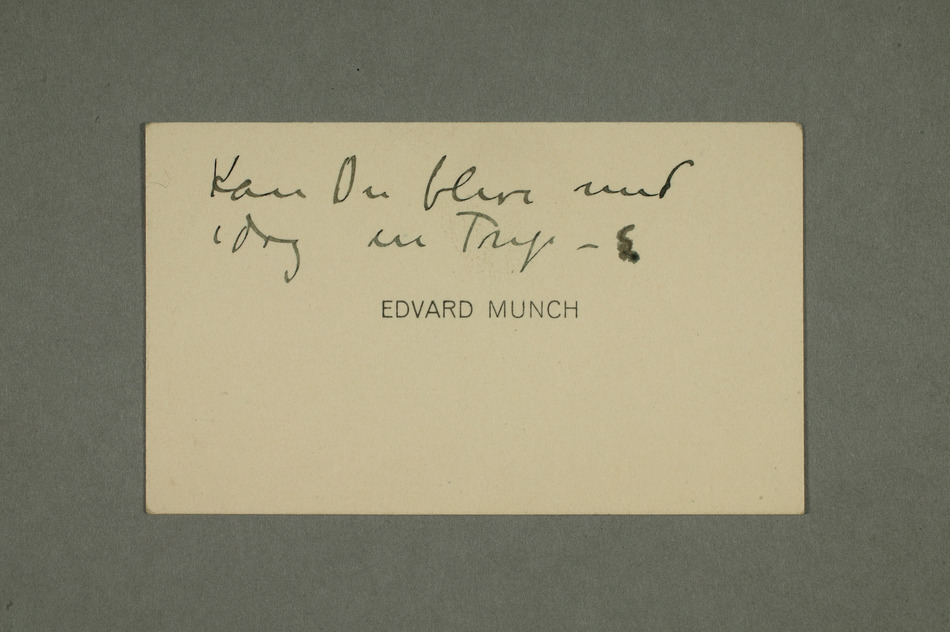 Kan Du blive med
idag en Trip –
EDVARD MUNCH